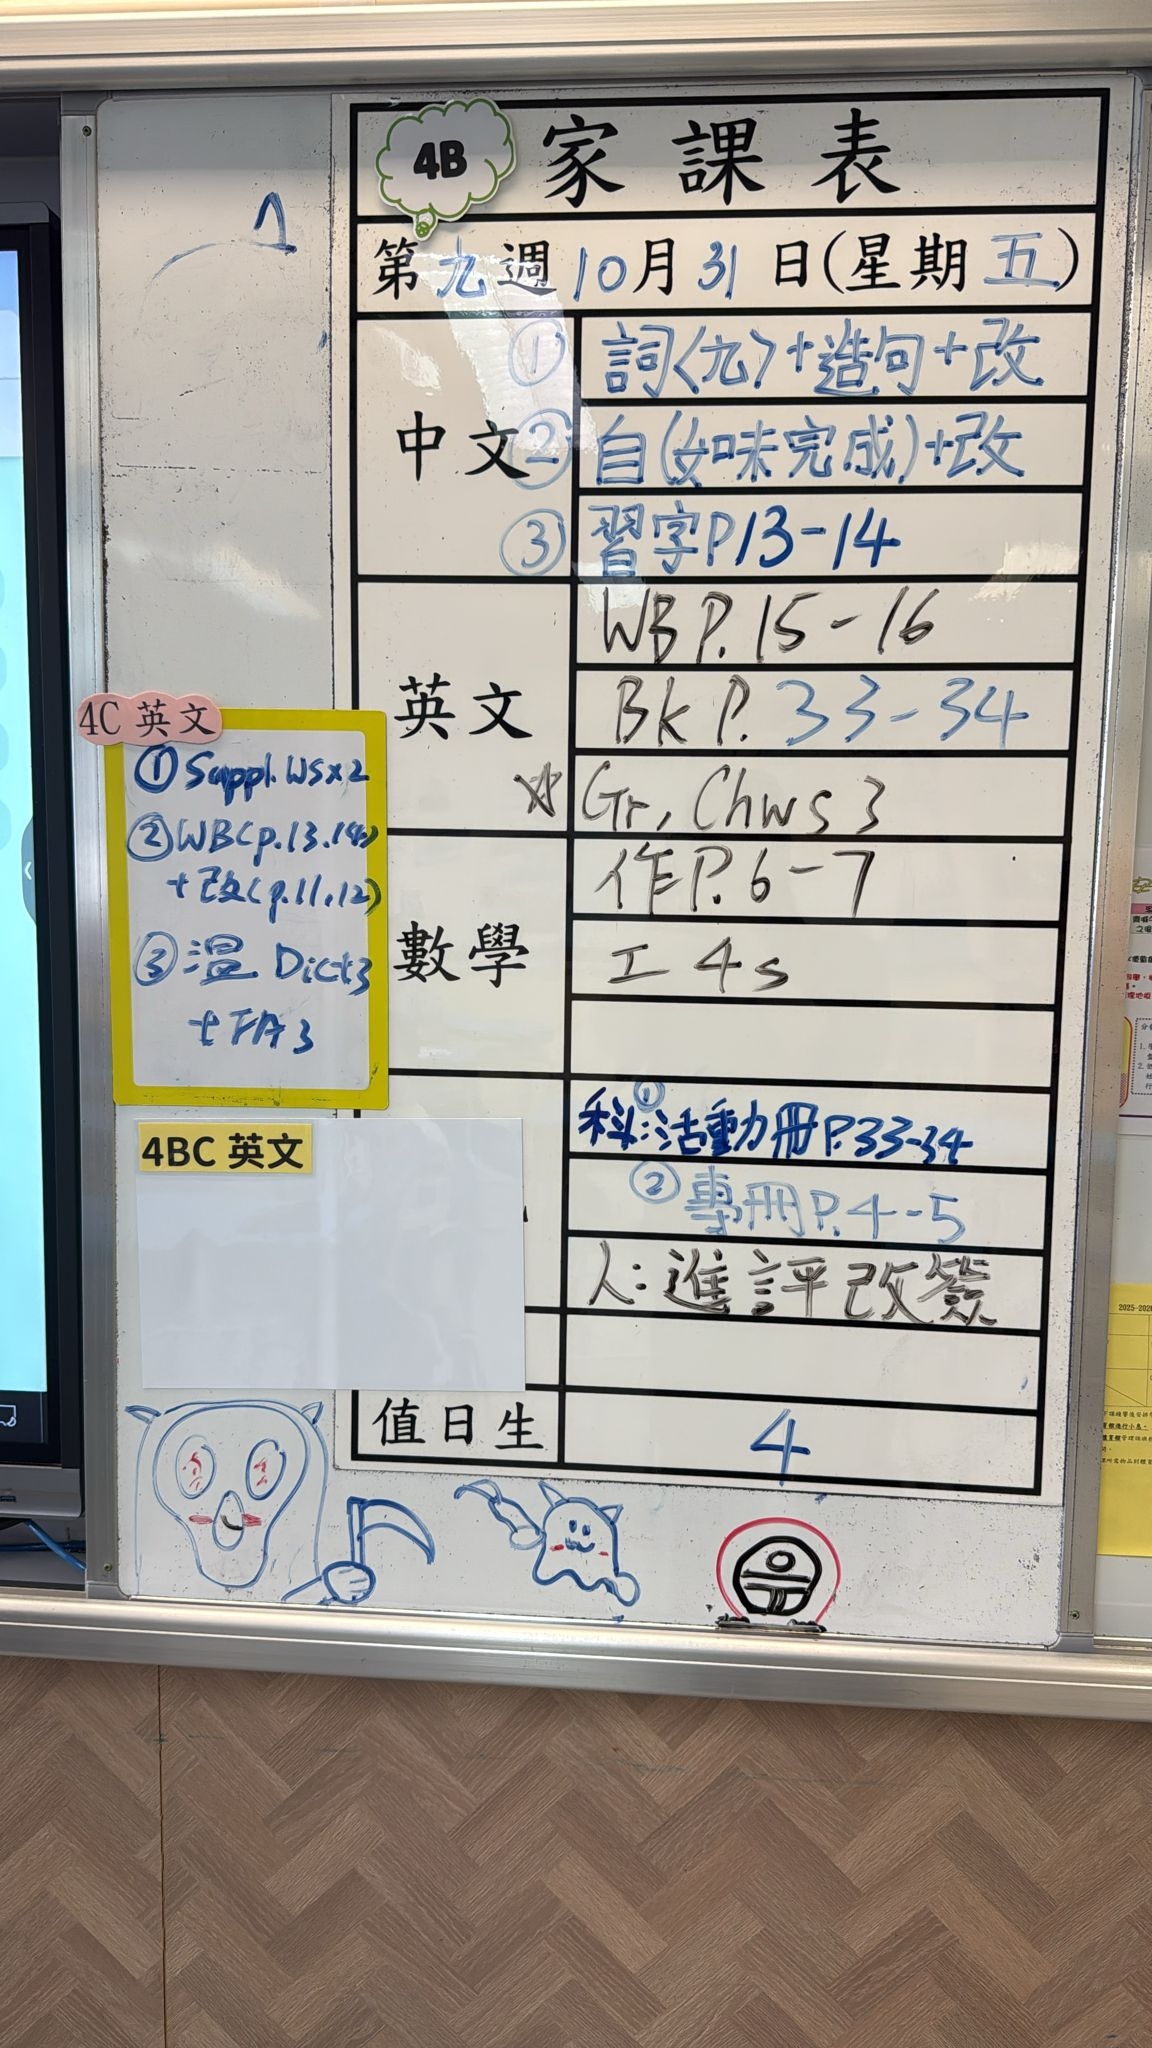 4B
家課表
第九週 10月31日(星期五)
中文
① 詞〈九〉+造句+改
② 自(女味完成)+改
③ 習字P13-14
英文
WB P. 15-16
Bk P. 33-34
☆ Gr, Chws 3
數學
作P. 6-7
工 4s
科:①活動冊P.33-34
②專冊P.4-5
人:進評改簽
值日生
4
4C 英文
① Suppl. WS x2
② WB(p.13.14)
+改(p.11,12)
③ 溫 Dict3
+ FA 3
4BC 英文